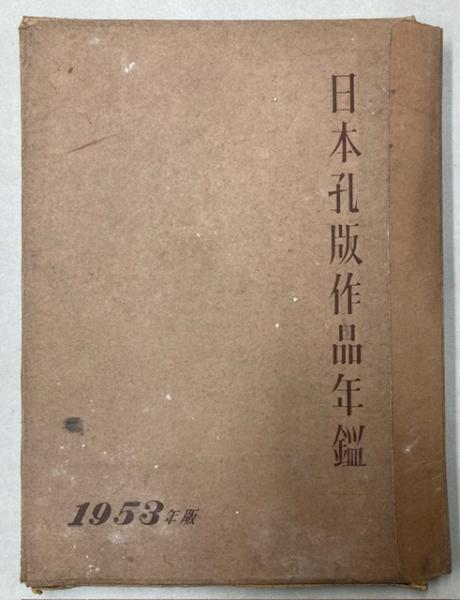 日本孔版作品年鑑
1953年版